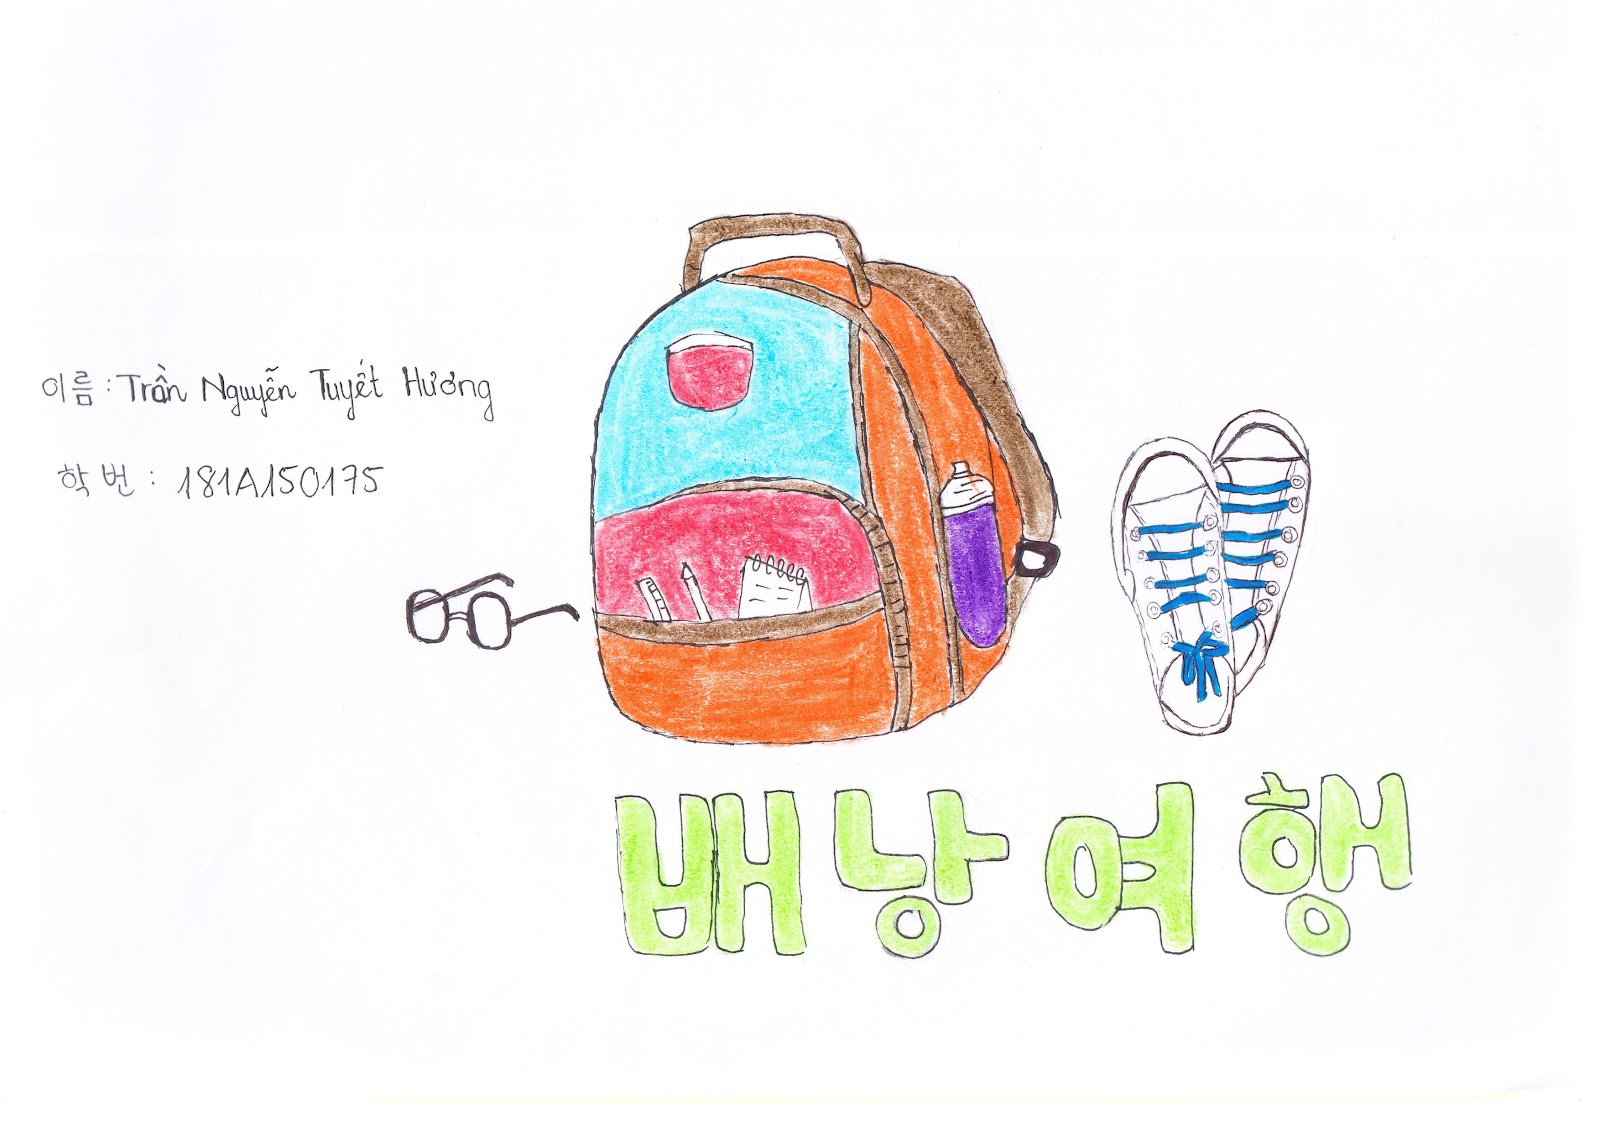 이름 : Trần Nguyễn Tuyết Hương
학번 : 181A150175
배낭여행